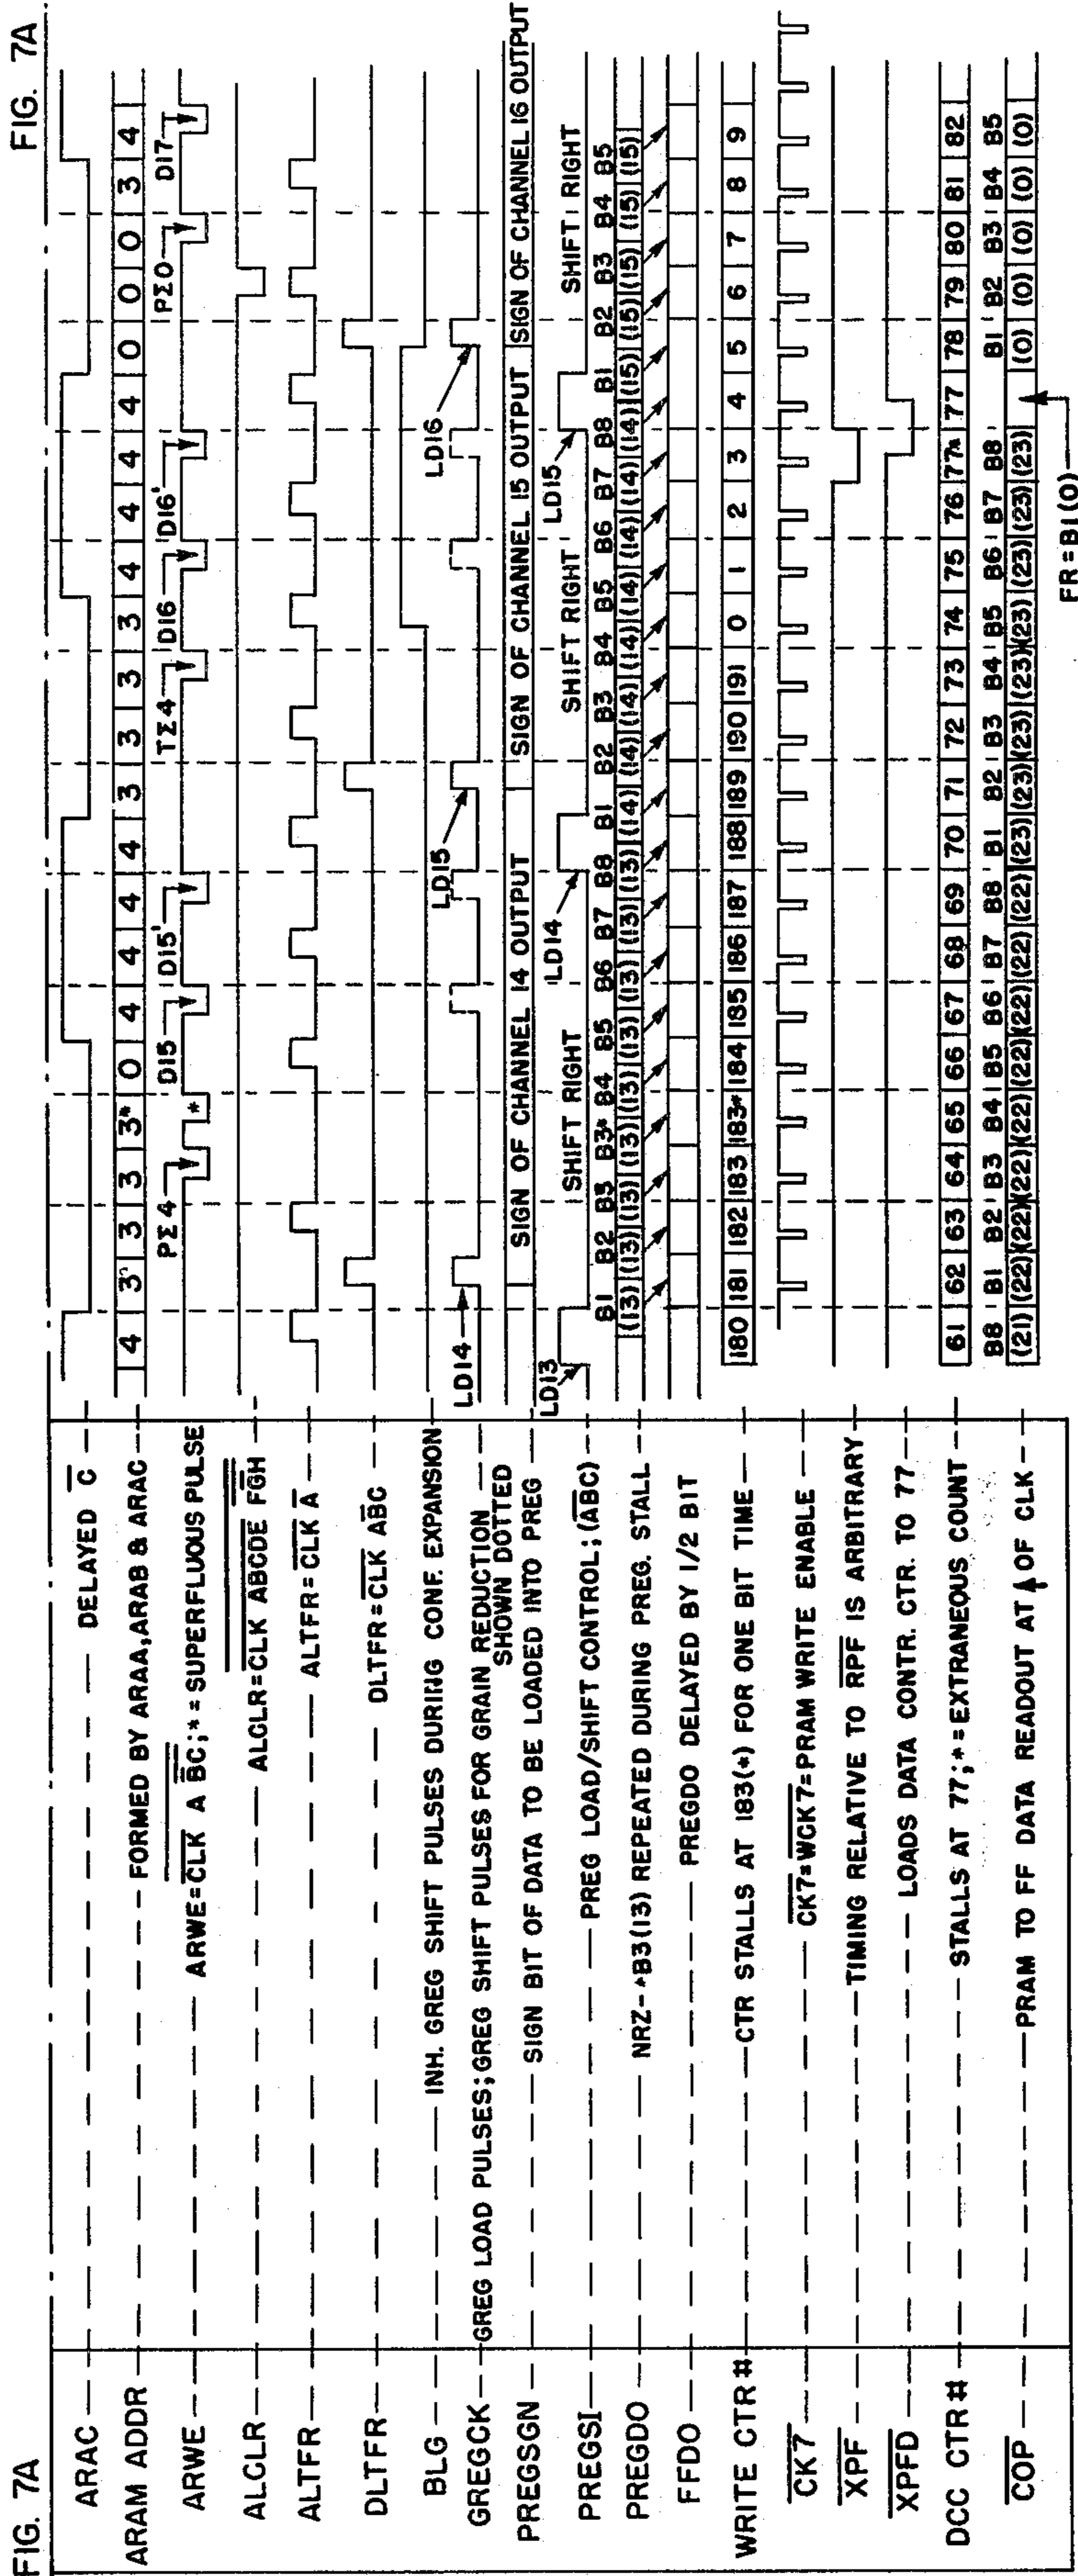 FIG. 7A
FIG. 7A
ARAC DELAYED C̅
ARAM ADDR FORMED BY ARAA, ARAB & ARAC 4 3 3 3 3* 0 4 4 4 4 3 3 3 3 4 4 4 4 0 0 0 3 4
ARWE ARWE=CLK A BC; *=SUPERFLUOUS PULSE PΣ4 * D15 D15' TΣ4 D16 D16' PΣ0 D17
ALCLR ALCLR=CLK ABCDE FGH
ALTFR ALTFR=CLK A
DLTFR DLTFR=CLK ABC
BLG INH. GREG SHIFT PULSES DURING CONF. EXPANSION
GREGCK GREG LOAD PULSES; GREG SHIFT PULSES FOR GRAIN REDUCTION SHOWN DOTTED LD14 LD15 LD16
PREGSGN SIGN BIT OF DATA TO BE LOADED INTO PREG SIGN OF CHANNEL 14 OUTPUT SIGN OF CHANNEL 15 OUTPUT SIGN OF CHANNEL 16 OUTPUT
PREGSI PREG LOAD/SHIFT CONTROL; (ABC) LD13 SHIFT RIGHT LD14 SHIFT RIGHT LD15 SHIFT RIGHT
B1 B2 B3 B3* B4 B5 B6 B7 B8 B1 B2 B3 B4 B5 B6 B7 B8 B1 B2 B3 B4 B5
PREGDO NRZ-*B3(13) REPEATED DURING PREG. STALL (13) (13) (13) (13) (13) (13) (13) (13) (13) (14) (14) (14) (14) (14) (14) (14) (14) (15) (15) (15) (15) (15)
FFDO PREGDO DELAYED BY 1/2 BIT
WRITE CTR # CTR STALLS AT 183(*) FOR ONE BIT TIME 180 181 182 183 183* 184 185 186 187 188 189 190 191 0 1 2 3 4 5 6 7 8 9
C̅K̅7̅ CK7=WCK7=PRAM WRITE ENABLE
X̅P̅F̅ TIMING RELATIVE TO R̅P̅F̅ IS ARBITRARY
X̅P̅F̅D̅ LOADS DATA CONTR. CTR. TO 77
DCC CTR # STALLS AT 77; *=EXTRANEOUS COUNT 61 62 63 64 65 66 67 68 69 70 71 72 73 74 75 76 77* 77 78 79 80 81 82
B8 B1 B2 B3 B4 B5 B6 B7 B8 B1 B2 B3 B4 B5 B6 B7 B8 B1 B2 B3 B4 B5
C̅O̅P̅ PRAM TO FF DATA READOUT AT OF CLK (21) (22) (22) (22) (22) (22) (22) (22) (22) (23) (23) (23) (23) (23) (23) (23) (23) (0) (0) (0) (0) (0)
FR=B1(0)